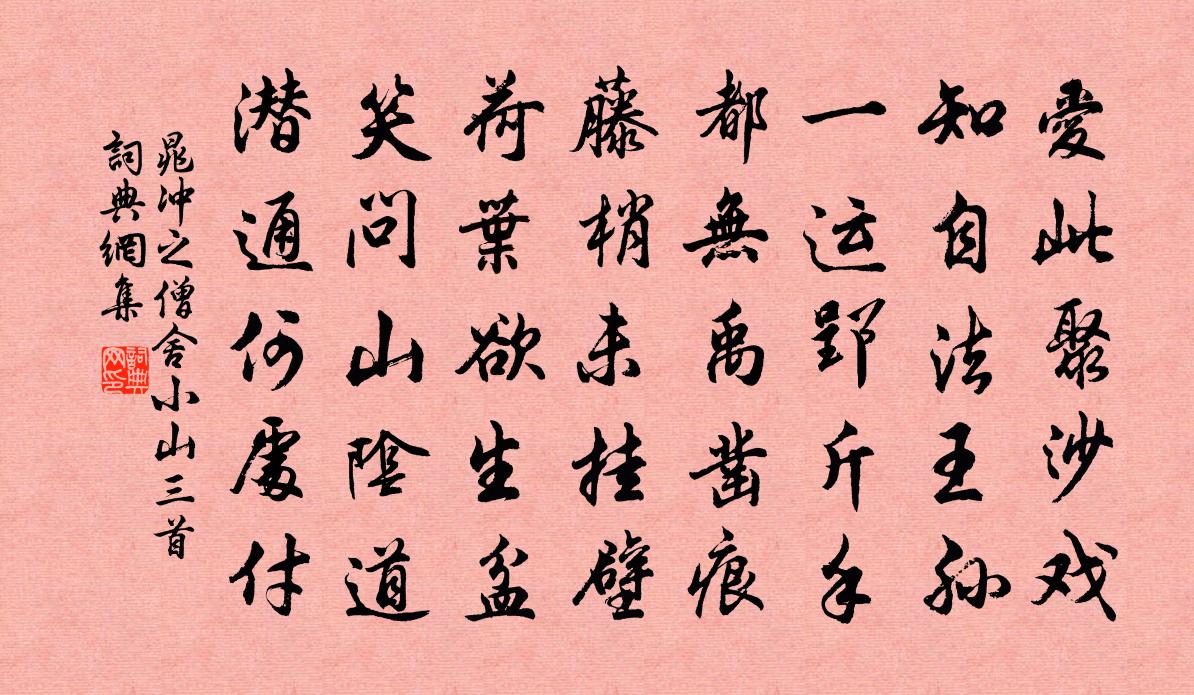 愛此聚沙戏
知自法王孙
一运郢斤手
都無禹凿痕
藤梢未挂壁
荷葉欲生盆
笑問山陰道
潜通何處村
晁冲之僧舍小山三首
詞典網集
詞典网印